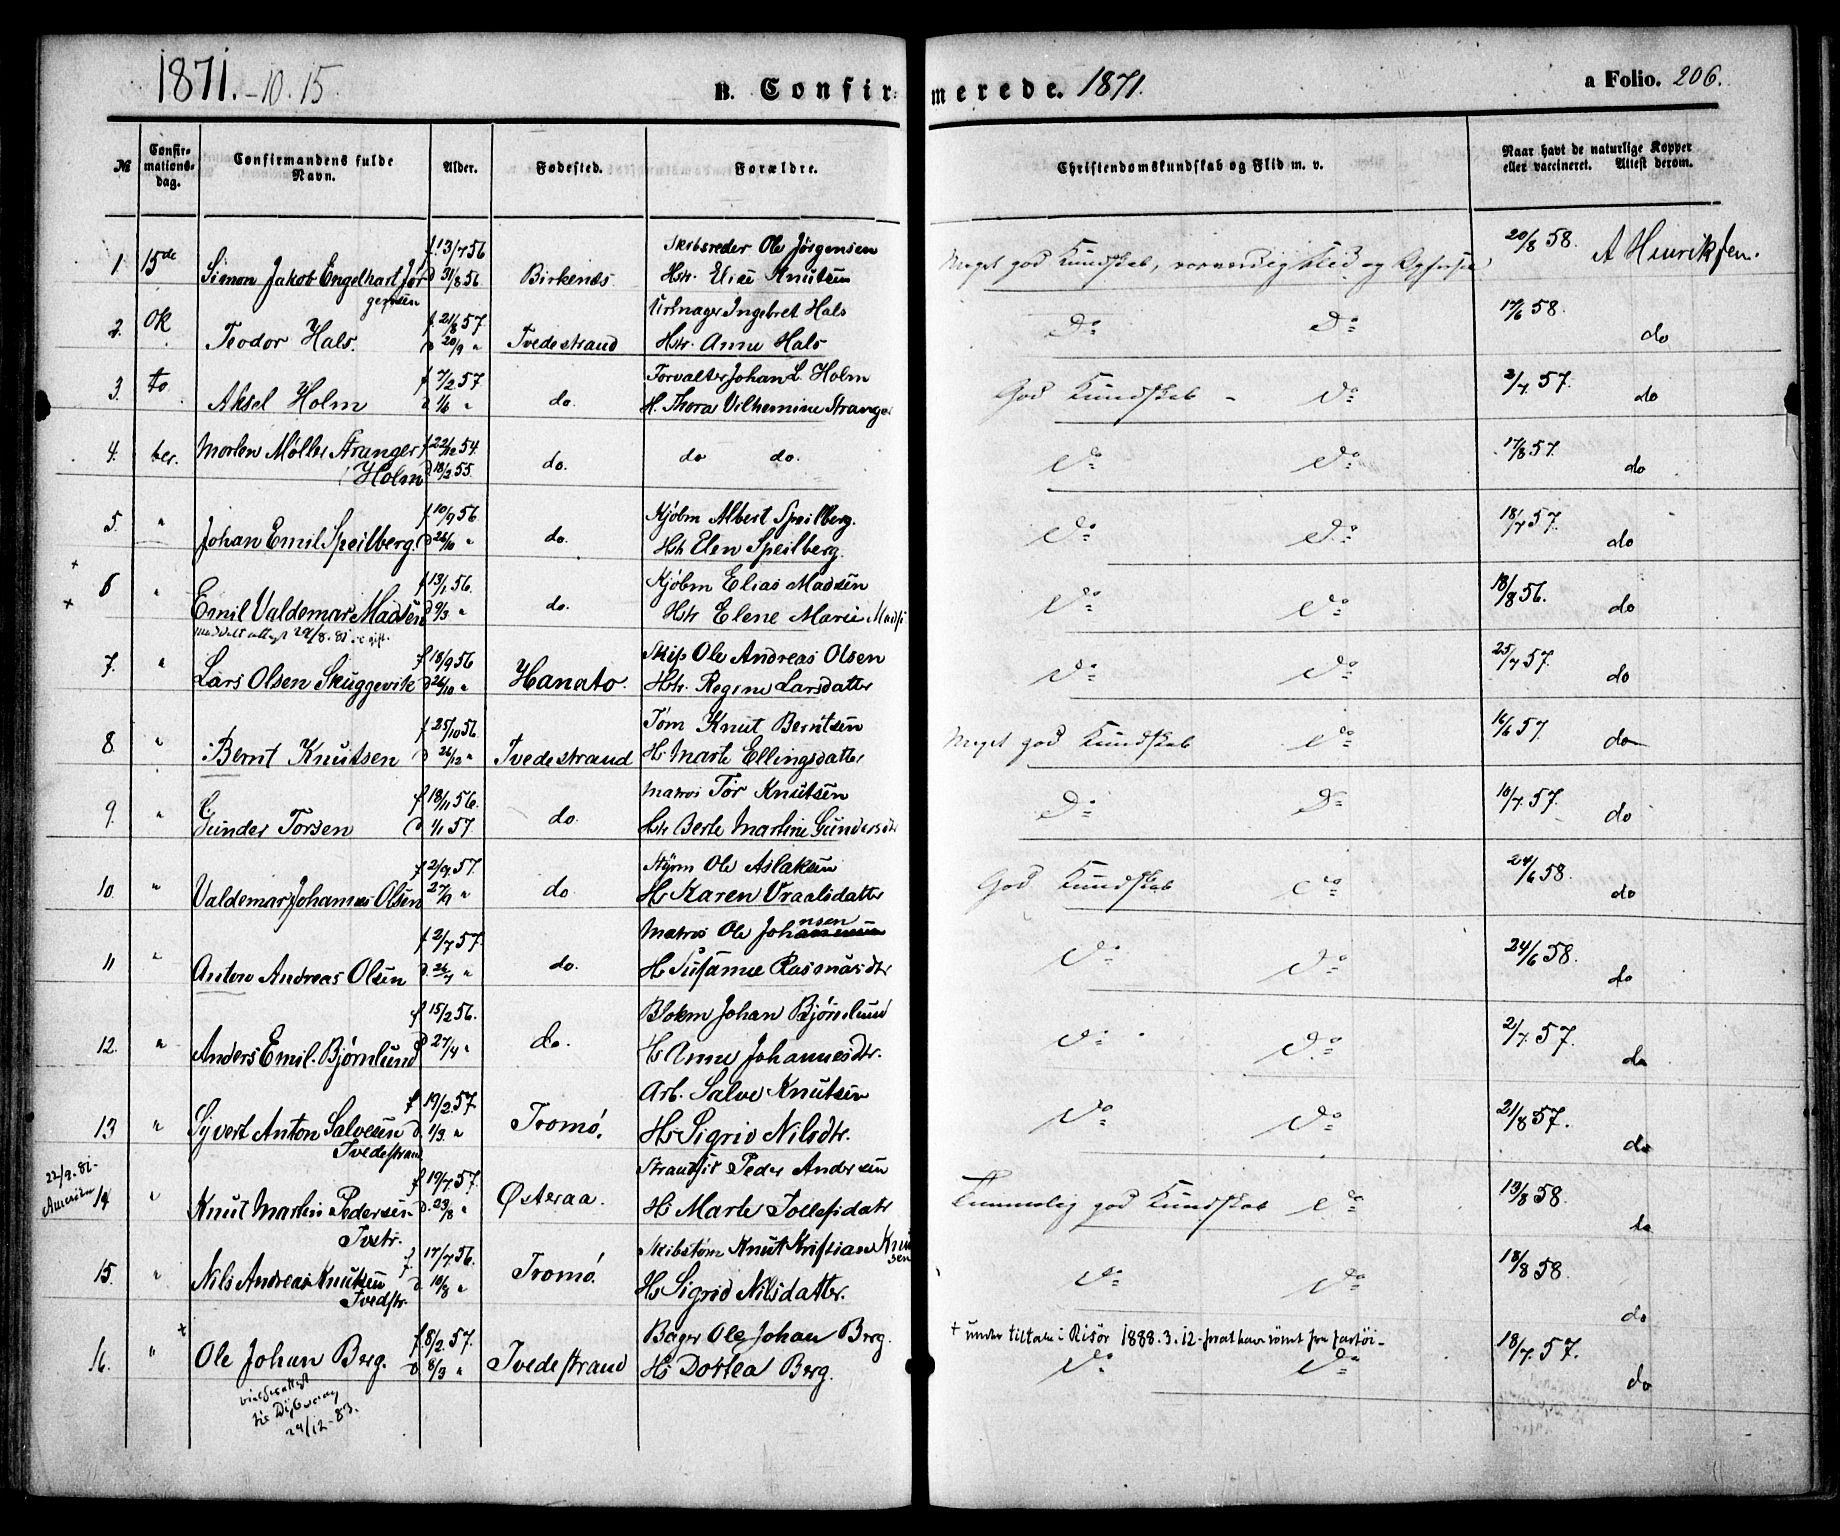 1871. - 10. 15.
B. Confirmerede. 1871.
a Folio. 206.
№
Confirmationsdag.
Confirmandens fulde Navn.
Alder.
Fødested.
Forældre.
Christendomskundskab og Flid m. v.
Naar havt de naturlige Kopper
eller vaccineret. Attest derom.
1. 15de Simon Jakob Engelhart Jørgensen f. 13/7 56 d 31/8 56 Birkenes Skibsreder Ole Jörgensen Hstr. Elise Knutsen Meget god Kundskab, 20/8 58. A Henriksen.
2. Ok Teodor Hals. f. 21/8 57. d 20/9 " Tvedestrand Urmager Ingebret Hals Hstr. Anne Hals Do Do 17/6 58. do
3. to Aksel Holm f 7/2 57 d 1/6 " do. Forvalter Johan L. Holm H. Thora Vilhemine Stranger God Kundskab - do 2/7. 57. do
4. ber. Morten Møller Stranger Holm f 22/12 54. d 18/2 55. do. do do. do do 17/8 57. do
5. " Johan Emil Speilberg. f. 10/9 56. d 26/10 " do. Kjøbm Albert Speilberg. Hstr Elen Speilberg. do do 18/7 57. do
+
6 " Emil Valdemar Madsen f 13/1 56. d 9/3 " do. Kjøbm Elias Madsen Hstr Elene Marie Mads do do 18/8 56. do
+
7. " Lars Olsen Skuggevik f 18/9 56 d 26/10 " Hanato. Skip Ole Andreas Olsen Hstr. Regine Larsdatter do do 25/7 57. do
8. " Bernt Knutsen f 25/10 56. d 26/12 " Tvedestrand Töm Knut Berntsen H. Marte Ellingsdatter Meget god Kundskab do 16/6 57. do
9. " Gunder Torsen f 18/11 56. d 1/1 57. do. Matros Tor Knutsen Hstr Berte Martine Gundersdtr Do Do 10/7. 57. do
10. " Valdemar Johannes Olsen f 2/9. 57. 27/9 " do Styrm Ole Aslaksen Hs Karen Vraalsdatter God Kundskab do 24/6 58. do
11 " Anton Andreas Olsen f 2/7 57. d. 26/7 " do. Matros Ole Johannsen Hs Susanne Rasmusdtr do do 24/6 58. do
12. " Anders Emil. Bjørnlund f 15/2 56. d 27/4 " do. Blokm Johan Bjørnlund Hs Anne Johannesdtr. do do 2/7. 57. do
13 " Syvert Anton Salvesen Tvedestrand f 19/2 57. d. 1/3. " Tromø. Arb. Salve Knutsen Hs Sigrid Nilsdtr. do do 21/8 57. do
22/9. 81 - Amerika
14 " Knut Martin Pedersen Tvstr. f. 19/7. 57. d. 23/8 " Østeraa. Strandsit Peder Andersen Hs Marte Tollefsdatr Temmelig god Kundskab do 13/8 58. do
15. " Nils Andreas Knutsen Tvedstr. f. 17/7. 56. d 10/8 " Tromø. Skibstøm Knut Kristian Knutsen Hs Sigrid Nilsdatter. do do 18/8 58. do
+
16. " Ole Johan Berg. f. 8/2. 57. d. 8/3 " Tvedestrand Bager Ole Johan Berg. Hs Dortea Berg. do do 18/7. 57. do
+ under tiltale i Risör 1888. 3. 12 -
24/12 - 83.